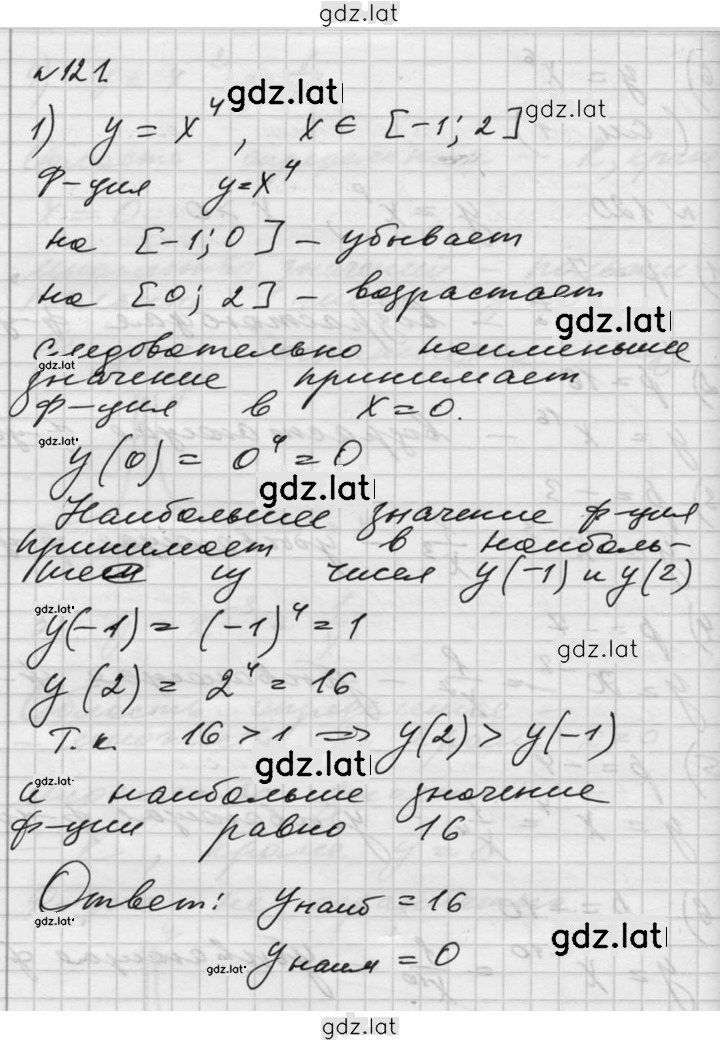 gdz.lat
№121
gdz.lat
1) y = x⁴, x ∈ [-1; 2]
gdz.lat
ф-ция y=x⁴
на [-1; 0] – убывает
на [0; 2] – возрастает
gdz.lat
следовательно наименьше
gdz.lat
значение принимает
ф-ция в x=0.
gdz.lat
y(0) = 0⁴ = 0
gdz.lat
Наибольшее значение ф-ция
принимает в наиболь-
шем из чисел y(-1) и y(2)
gdz.lat
y(-1) = (-1)⁴ = 1
gdz.lat
y(2) = 2⁴ = 16
Т.к. 16 > 1 => y(2) > y(-1)
gdz.lat
gdz.lat
а наибольше значение
ф-ции равно 16
Ответ: yнаиб = 16
gdz.lat
gdz.lat
yнаим = 0
gdz.lat